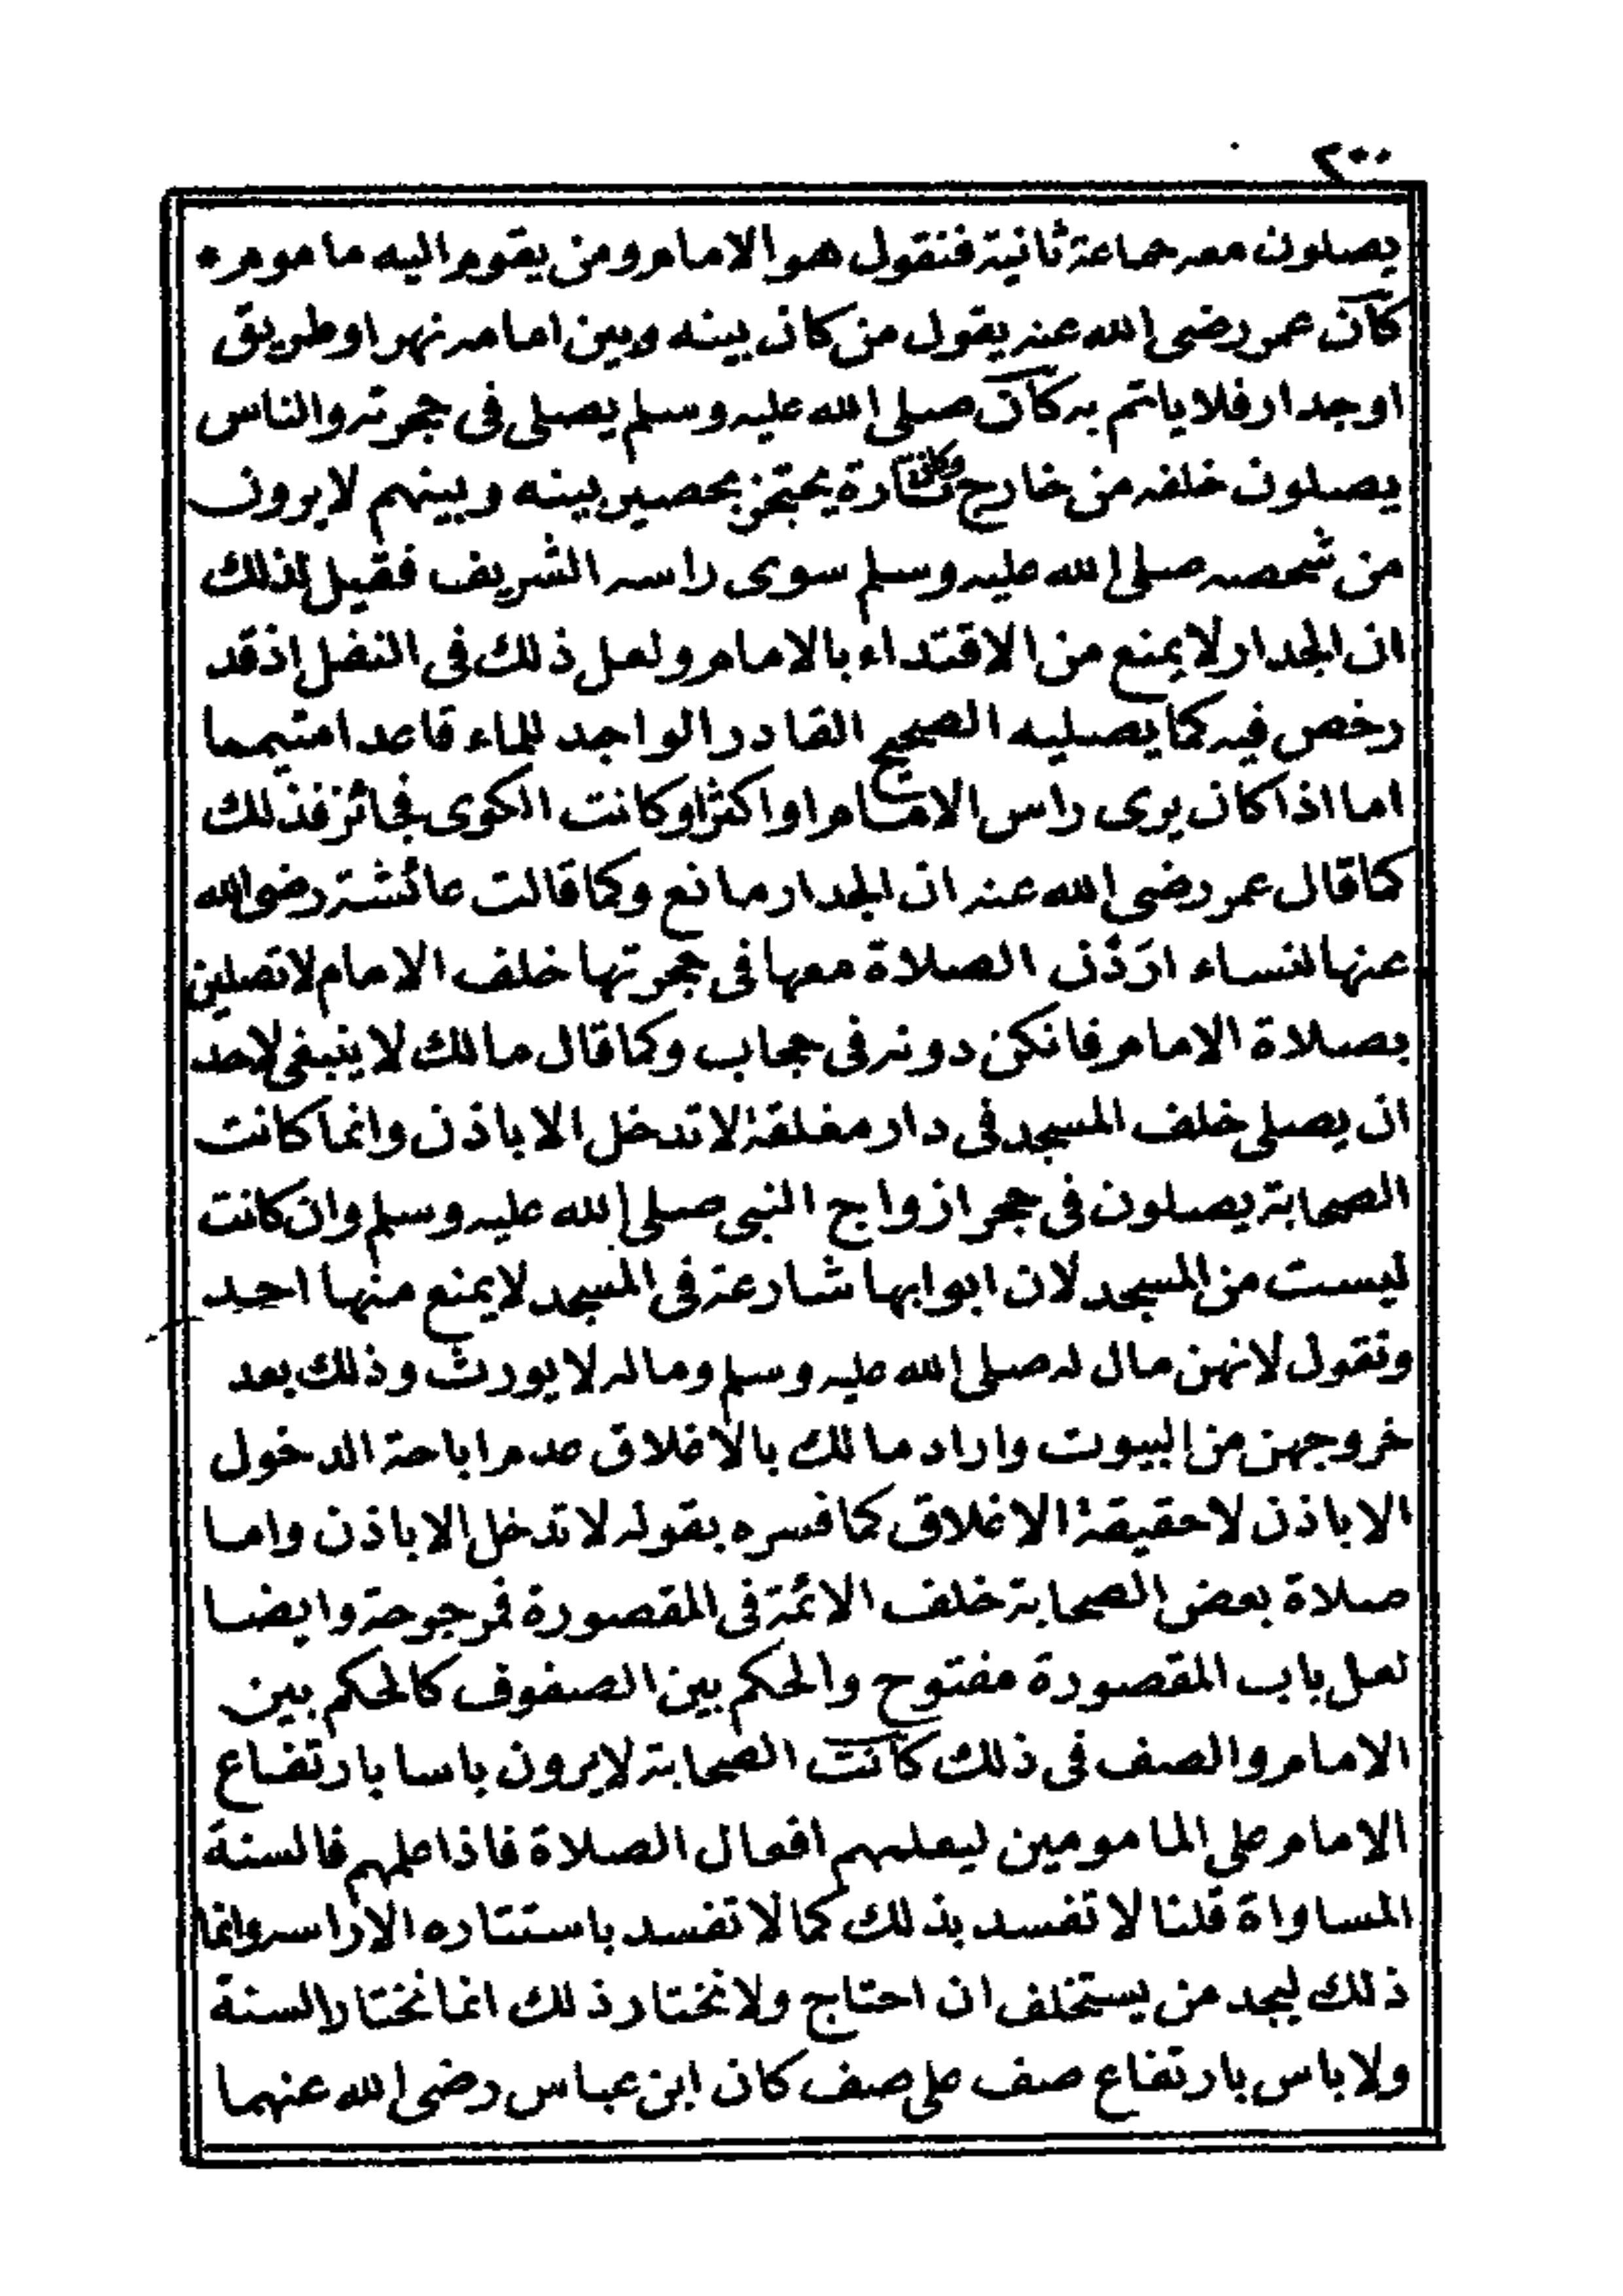 ٢٠٠
يصلون معه جماعة ثانية فنقول هو الامام ومن يقوم اليه ماموم *
كان عمر رضى الله عنه يقول من كان بينه وبين امامه نهر او طريق
او جدار فلا ياتم به كان صلى الله عليه وسلم يصلى فى حجرته والناس
يصلون خلفه من خارج وكان تارة يحتجز بحصير بينه وبينهم لا يرون
من شخصه صلى الله عليه وسلم سوى راسه الشريف فقيل لذلك
ان الجدار لا يمنع من الاقتداء بالامام ولعل ذلك فى النفل اذ قد
رخص فيه كما يصليه الصحيح القادر الواجد للماء قاعدا متيمما
اما اذا كان يرى راس الامام او اكثر او كانت الكوى فجائز فذلك
كما قال عمر رضى الله عنه ان الجدار مانع وكما قالت عائشة رضى الله
عنها لنساء اردن الصلاة معها فى حجرتها خلف الامام لا تصلين
بصلاة الامام فانكن دونه فى حجاب وكما قال مالك لا ينبغى لاحد
ان يصلى خلف المسجد فى دار مغلقة لا تدخل الا باذن وانما كانت
الصحابة يصلون فى حجر ازواج النبى صلى الله عليه وسلم وان كانت
ليست من المسجد لان ابوابها شارعة فى المسجد لا يمنع منها احد
ونقول لانهن مال له صلى الله عليه وسلم وماله لا يورث وذلك بعد
خروجهن من البيوت واراد مالك بالاغلاق عدم اباحة الدخول
الا باذن لا حقيقة الاغلاق كما فسره بقوله لا تدخل الا باذن واما
صلاة بعض الصحابة خلف الائمة فى المقصورة فمرجوحة وايضا
لعل باب المقصورة مفتوح والحكم بين الصفوف كالحكم بين
الامام والصف فى ذلك كانت الصحابة لا يرون باسا بارتفاع
الامام على المامومين ليعلمهم افعال الصلاة فاذا علمهم فالسنة
المساواة قلنا لا تفسد بذلك كما لا تفسد باستتاره الا راسه وانما
ذلك ليجد من يستخلف ان احتاج ولا نختار ذلك انما نختار السنة
ولا باس بارتفاع صف على صف كان ابن عباس رضى الله عنهما